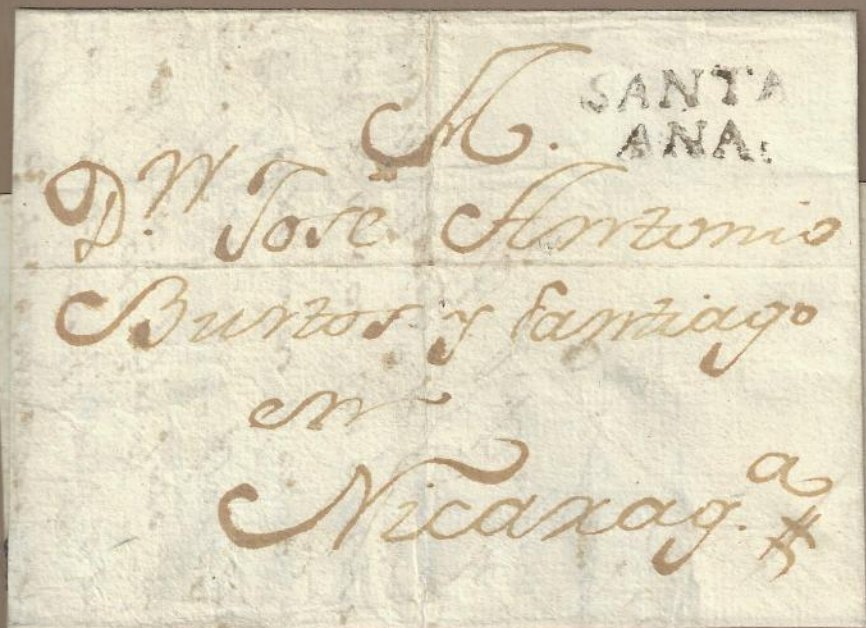 SANTA
ANA.
A.
D.n Jose Antonio
Bustos y Santiago
en
Nicarag.a